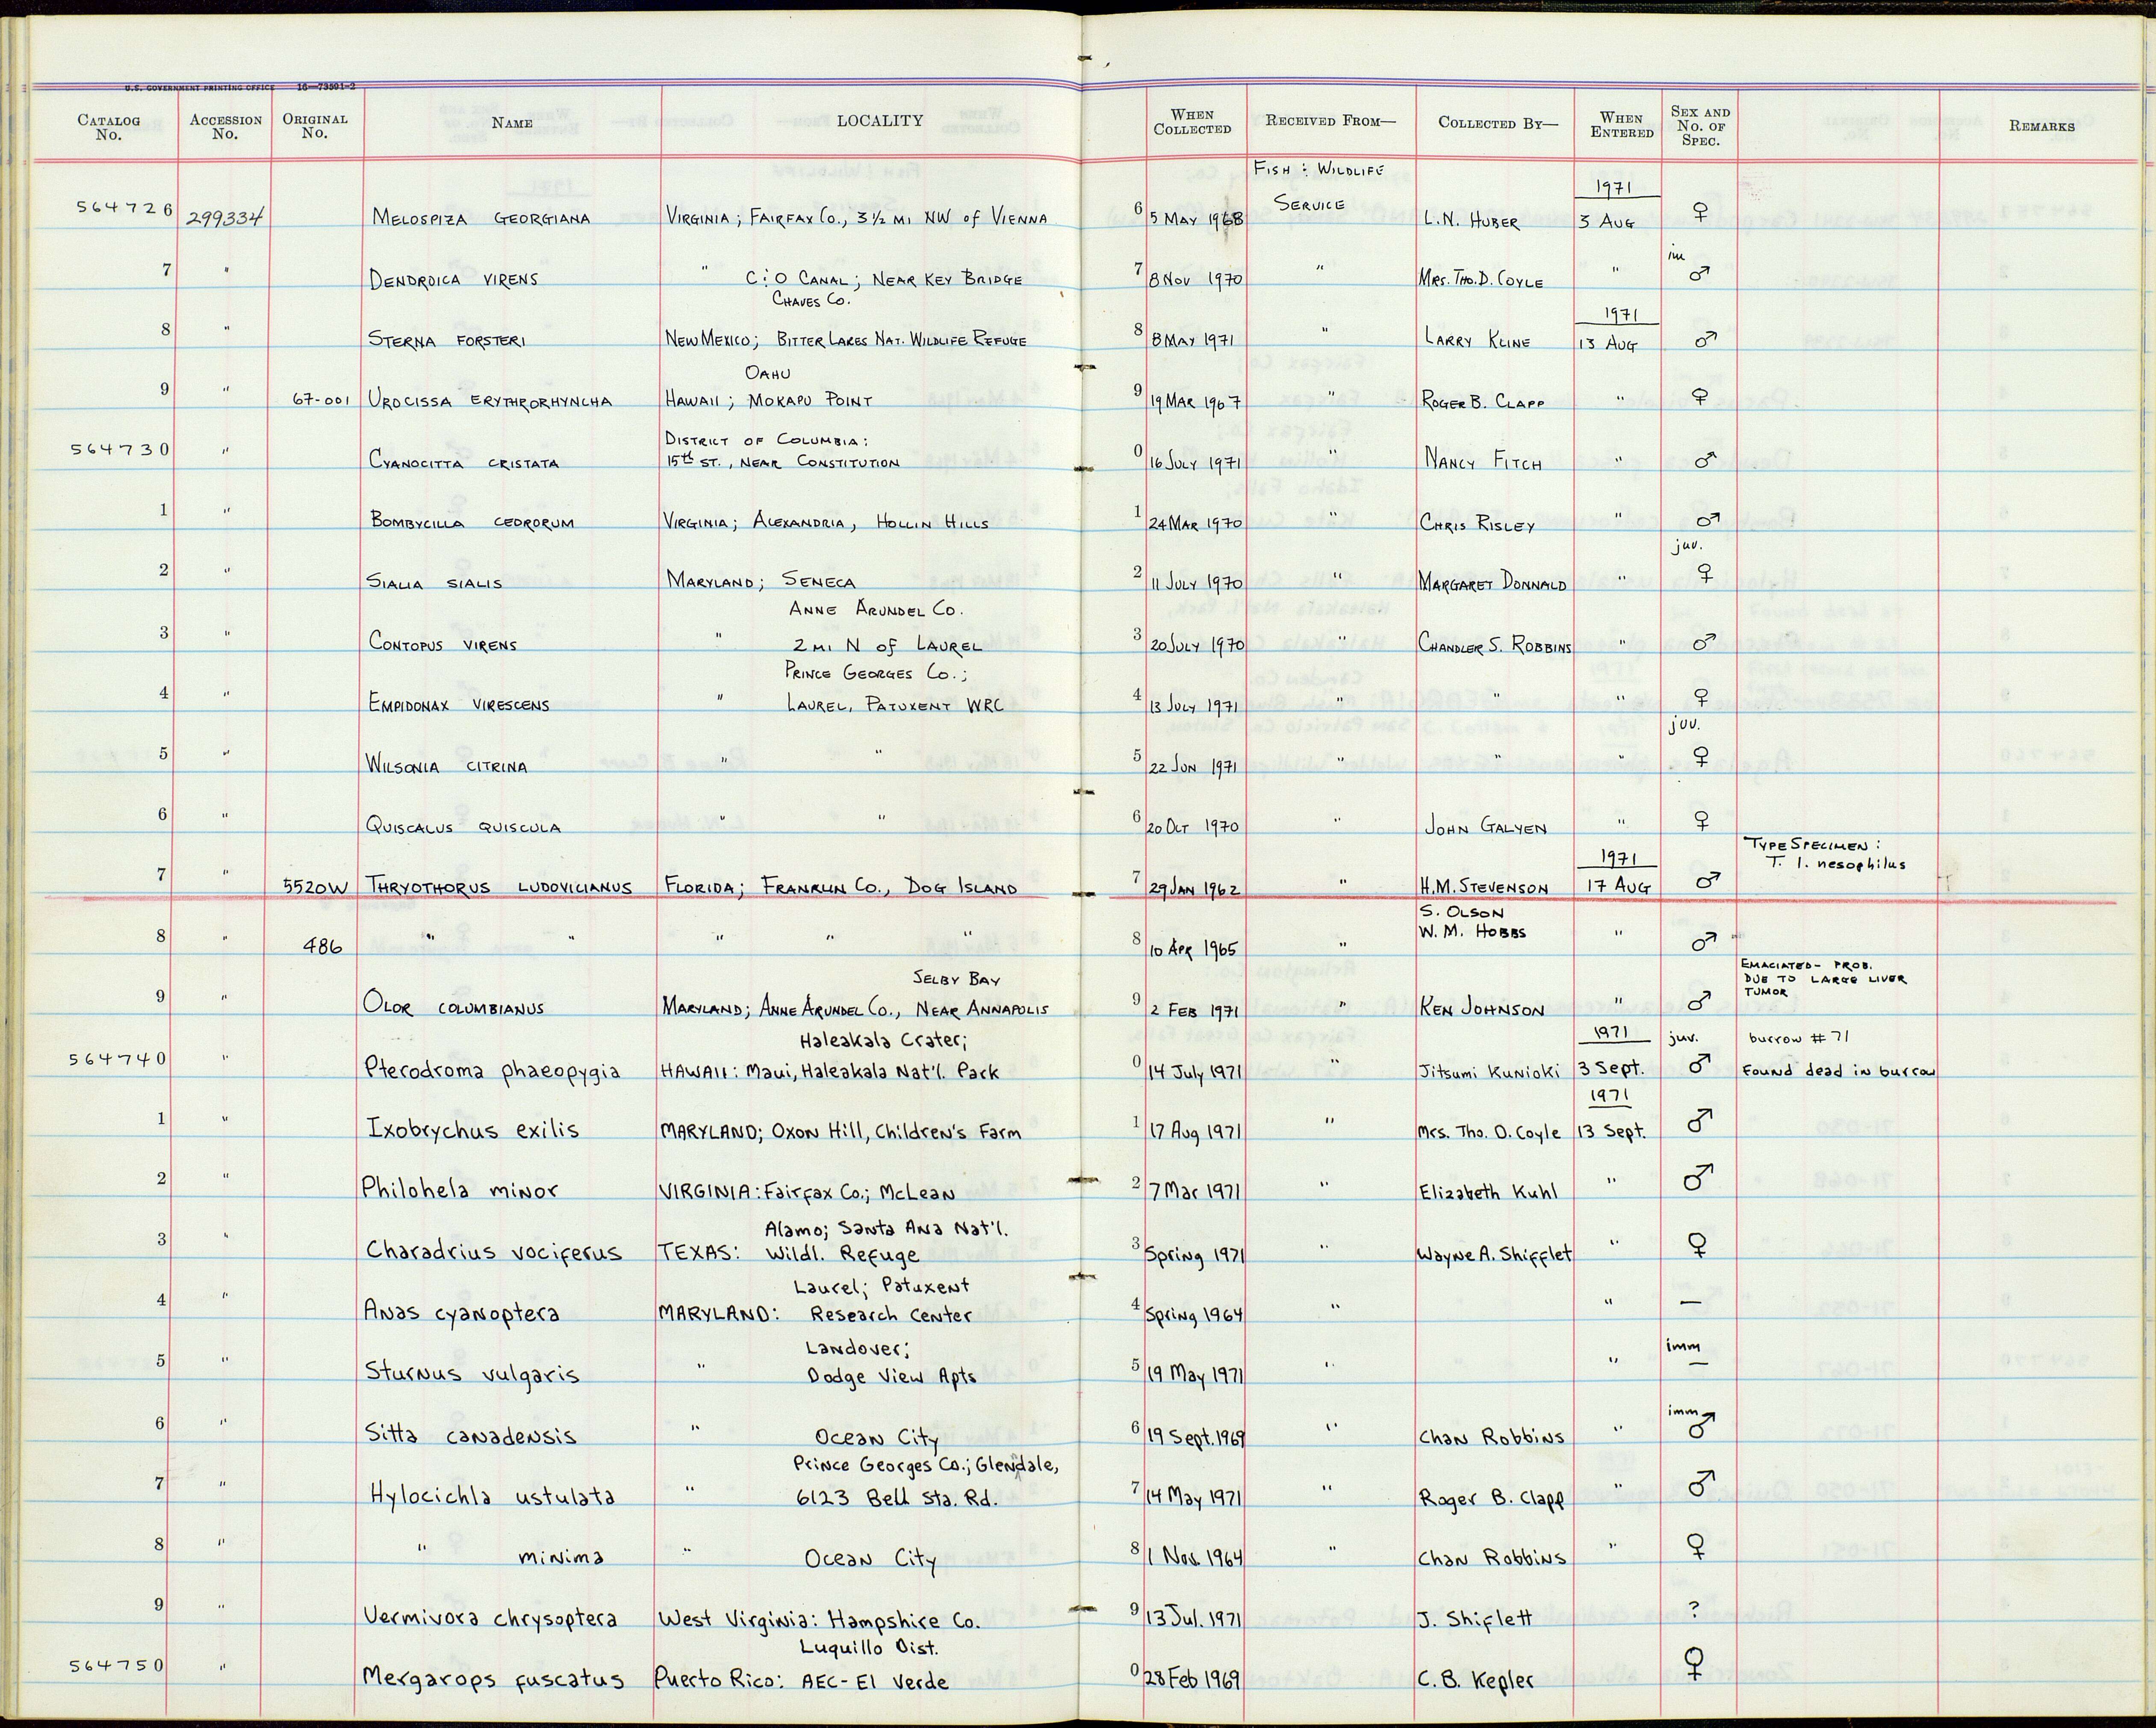 U.S. GOVERNMENT PRINTING OFFICE 16—73591-2
CATALOG No. ACCESSION No. ORIGINAL No. NAME LOCALITY WHEN COLLECTED RECEIVED FROM— COLLECTED BY— WHEN ENTERED SEX AND No. OF SPEC. REMARKS
FISH : WILDLIFE
1971
564726 299334 MELOSPIZA GEORGIANA VIRGINIA; FAIRFAX CO., 3½ MI NW of VIENNA 6 5 MAY 1968 SERVICE L.N. HUBER 3 AUG ♀
im
7 " DENDROICA VIRENS " C:O CANAL; NEAR KEY BRIDGE 7 8 NOV 1970 " MRS. THO. D. COYLE " ♂
CHAVES CO. 1971
8 " STERNA FORSTERI NEW MEXICO; BITTER LAKES NAT. WILDLIFE REFUGE 8 8 MAY 1971 " LARRY KLINE 13 AUG ♂
OAHU
9 " 67-001 UROCISSA ERYTHRORHYNCHA HAWAII; MOKAPU POINT 9 19 MAR 1967 " ROGER B. CLAPP " ♀
DISTRICT OF COLUMBIA:
564730 " CYANOCITTA CRISTATA 15th ST., NEAR CONSTITUTION 0 16 JULY 1971 " NANCY FITCH " ♂
1 " BOMBYCILLA CEDRORUM VIRGINIA; ALEXANDRIA, HOLLIN HILLS 1 24 MAR 1970 " CHRIS RISLEY " ♂
juv.
2 " SIALIA SIALIS MARYLAND; SENECA 2 11 JULY 1970 " MARGARET DONNALD " ♀
ANNE ARUNDEL CO.
3 " CONTOPUS VIRENS " 2 MI N OF LAUREL 3 20 JULY 1970 " CHANDLER S. ROBBINS " ♂
PRINCE GEORGES CO.;
4 " EMPIDONAX VIRESCENS " LAUREL, PATUXENT WRC 4 13 JULY 1971 " " " ♀
juv.
5 " WILSONIA CITRINA " " 5 22 JUN 1971 " " " ♀
6 " QUISCALUS QUISCULA " " 6 20 OCT 1970 " JOHN GALYEN " ♀
1971 TYPE SPECIMEN:
T. l. nesophilus
7 " 5520W THRYOTHORUS LUDOVICIANUS FLORIDA; FRANKLIN CO., DOG ISLAND 7 29 JAN 1962 " H.M. STEVENSON 17 AUG ♂
S. OLSON
8 " 486 " " " " " 8 10 APR 1965 " W. M. HOBBS " ♂
SELBY BAY EMACIATED- PROB.
DUE TO LARGE LIVER
TUMOR
9 " OLOR COLUMBIANUS MARYLAND; ANNE ARUNDEL CO., NEAR ANNAPOLIS 9 2 FEB 1971 " KEN JOHNSON " ♂
Haleakala Crater; 1971 juv. burrow # 71
564740 " Pterodroma phaeopygia HAWAII: Maui, Haleakala Nat'l. Park 0 14 July 1971 " Jitsumi Kunioki 3 Sept. ♂ Found dead in burrow
1971
1 " Ixobrychus exilis MARYLAND; Oxon Hill, Children's Farm 1 17 Aug 1971 " Mrs. Tho. D. Coyle 13 Sept. ♂
2 " Philohela minor VIRGINIA: Fairfax Co.; McLean 2 7 Mar 1971 " Elizabeth Kuhl " ♂
Alamo; Santa Ana Nat'l.
3 " Charadrius vociferus TEXAS: Wildl. Refuge 3 Spring 1971 " Wayne A. Shifflet " ♀
Laurel; Patuxent
4 " Anas cyanoptera MARYLAND: Research Center 4 Spring 1964 " " —
Landover; imm
5 " Sturnus vulgaris " Dodge View Apts 5 19 May 1971 " " —
imm
6 " Sitta canadensis " Ocean City 6 19 Sept. 1969 " Chan Robbins " ♂
Prince Georges Co.; Glendale,
7 " Hylocichla ustulata " 6123 Bell Sta. Rd. 7 14 May 1971 " Roger B. Clapp " ♂
8 " " minima " Ocean City 8 1 Nov. 1964 " Chan Robbins " ♀
9 " Vermivora chrysoptera West Virginia: Hampshire Co. 9 13 Jul. 1971 J. Shiflett ?
Luquillo Dist.
564750 " Mergarops fuscatus Puerto Rico: AEC-El Verde 0 28 Feb 1969 C. B. Kepler ♀